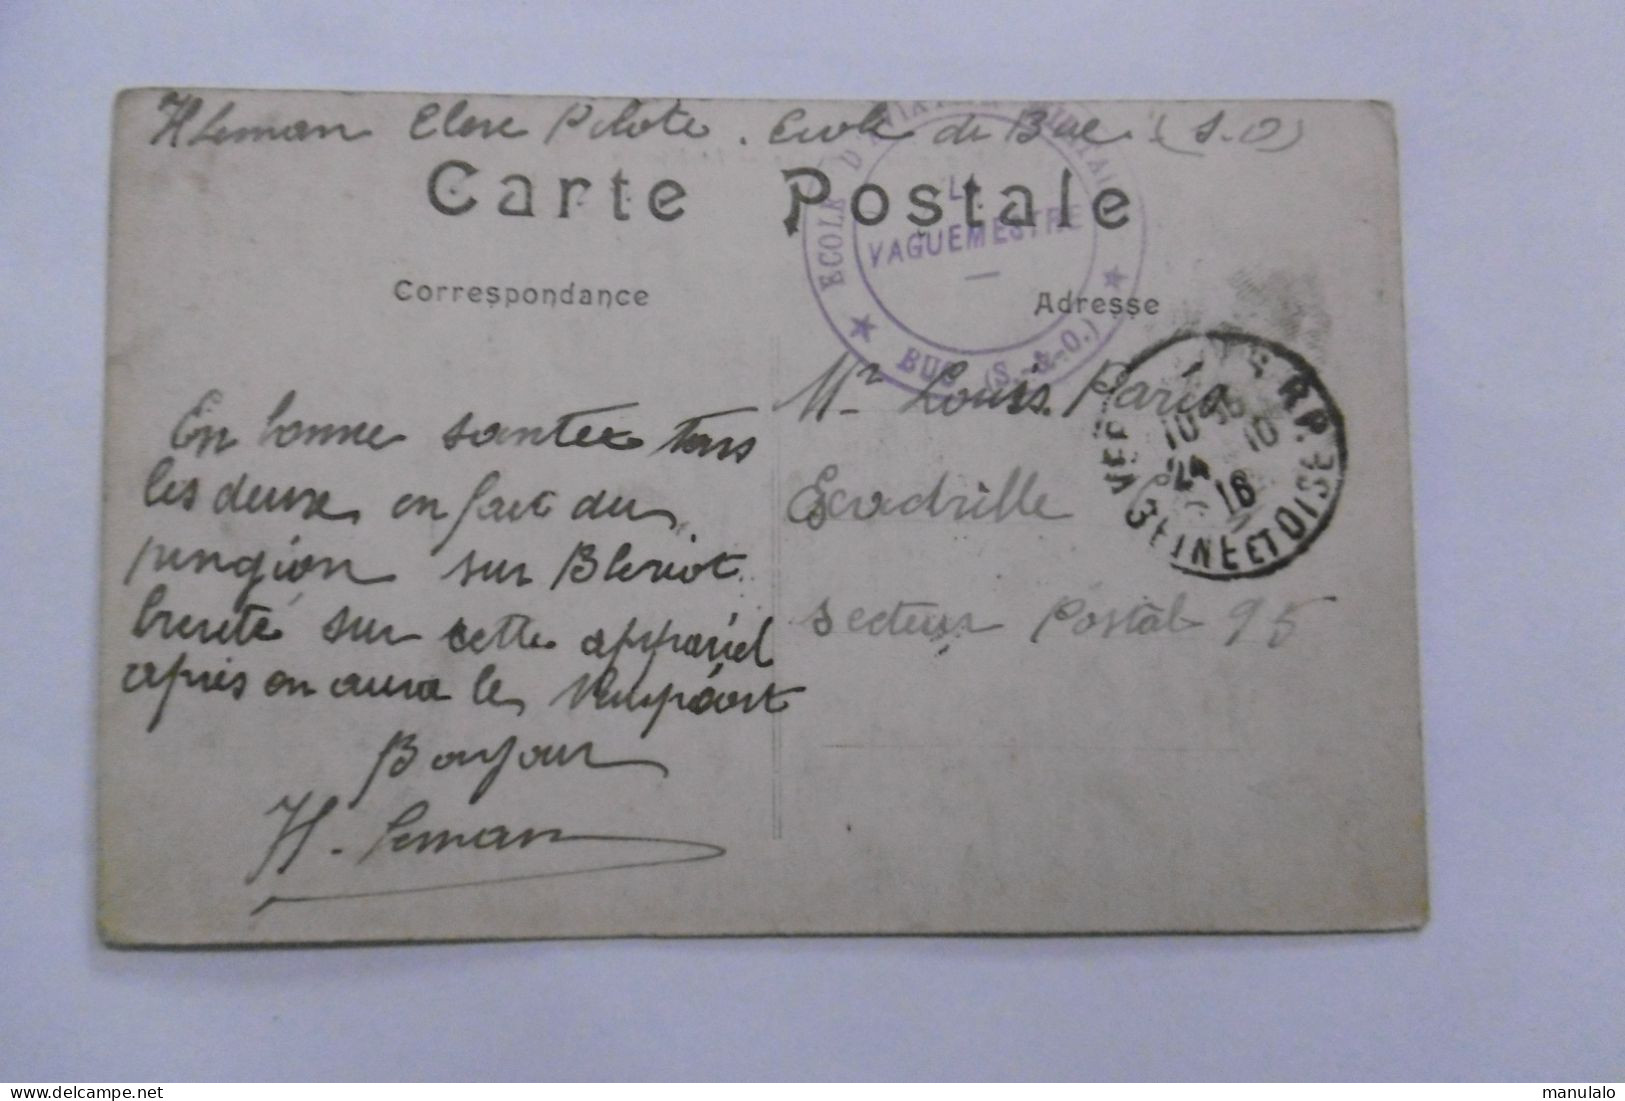 H Leman Eleve Pilote. Ecole de Buc (S.O)
Carte Postale
ECOLE D'AVIATION MILITAIRE
LE
VAGUEMESTRE
BUC (S.-&-O.)
Correspondance
Adresse
Mr Louis. Paris
Escadrille
Secteur Postal 95
VERSAILLES R.P.
10 10
24
16
SEINE ET OISE
En bonne santee tous
les deux, on fait du
pingion sur Bleriot
breveté sur cette appariel
après on aura le Neuport
Bonjour
H. Leman
manulalo